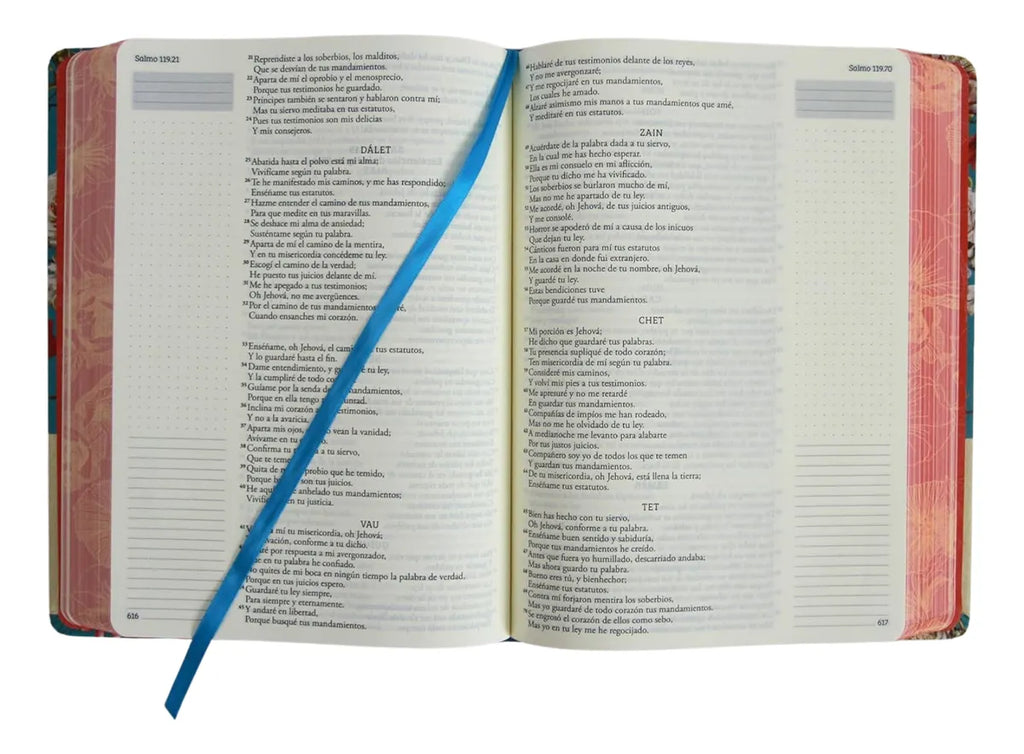 Salmo 119.21
21Reprendiste a los soberbios, los malditos,
Que se desvían de tus mandamientos.
22Aparta de mí el oprobio y el menosprecio,
Porque tus testimonios he guardado.
23Príncipes también se sentaron y hablaron contra mí;
Mas tu siervo meditaba en tus estatutos,
24Pues tus testimonios son mis delicias
Y mis consejeros.
DÁLET
25Abatida hasta el polvo está mi alma;
Vivifícame según tu palabra.
26Te he manifestado mis caminos, y me has respondido;
Enséñame tus estatutos.
27Hazme entender el camino de tus mandamientos,
Para que medite en tus maravillas.
28Se deshace mi alma de ansiedad;
Susténtame según tu palabra.
29Aparta de mí el camino de la mentira,
Y en tu misericordia concédeme tu ley.
30Escogí el camino de la verdad;
He puesto tus juicios delante de mí.
31Me he apegado a tus testimonios;
Oh Jehová, no me avergüences.
32Por el camino de tus mandamientos
Cuando ensanches mi corazón.
33Enséñame, oh Jehová, el tus estatutos,
Y lo guardaré hasta el fin.
34Dame entendimiento, y tu ley,
Y la cumpliré de todo
35Guíame por la senda de mandamientos,
Porque en ella tengo
36Inclina mi corazón a
Y no a la avaricia.
37Aparta mis ojos, vean la vanidad;
Avívame en tu
38Confirma tu a tu siervo,
Que te
39Quita de oprobio que he temido,
son tus juicios.
40He anhelado tus mandamientos;
en tu justicia.
VAU
41 mí tu misericordia, oh Jehová;
conforme a tu dicho.
por respuesta a mi avergonzador,
en tu palabra he confiado.
quites de mi boca en ningún tiempo la palabra de verdad,
Porque en tus juicios espero.
Guardaré tu ley siempre,
Para siempre y eternamente.
45Y andaré en libertad,
Porque busqué tus mandamientos.
616
Salmo 119.70
46Hablaré de tus testimonios delante de los reyes,
Y no me avergonzaré;
47Y me regocijaré en tus mandamientos,
Los cuales he amado.
48Alzaré asimismo mis manos a tus mandamientos que amé,
Y meditaré en tus estatutos.
ZAIN
49Acuérdate de la palabra dada a tu siervo,
En la cual me has hecho esperar.
50Ella es mi consuelo en mi aflicción,
Porque tu dicho me ha vivificado.
51Los soberbios se burlaron mucho de mí,
Mas no me he apartado de tu ley.
52Me acordé, oh Jehová, de tus juicios antiguos,
Y me consolé.
53Horror se apoderó de mí a causa de los inicuos
Que dejan tu ley.
54Cánticos fueron para mí tus estatutos
En la casa en donde fui extranjero.
55Me acordé en la noche de tu nombre, oh Jehová,
Y guardé tu ley.
56Estas bendiciones tuve
Porque guardé tus mandamientos.
CHET
57Mi porción es Jehová;
He dicho que guardaré tus palabras.
58Tu presencia supliqué de todo corazón;
Ten misericordia de mí según tu palabra.
59Consideré mis caminos,
Y volví mis pies a tus testimonios.
60Me apresuré y no me retardé
En guardar tus mandamientos.
61Compañías de impíos me han rodeado,
Mas no me he olvidado de tu ley.
62A medianoche me levanto para alabarte
Por tus justos juicios.
63Compañero soy yo de todos los que te temen
Y guardan tus mandamientos.
64De tu misericordia, oh Jehová, está llena la tierra;
Enséñame tus estatutos.
TET
65Bien has hecho con tu siervo,
Oh Jehová, conforme a tu palabra.
66Enséñame buen sentido y sabiduría,
Porque tus mandamientos he creído.
67Antes que fuera yo humillado, descarriado andaba;
Mas ahora guardo tu palabra.
68Bueno eres tú, y bienhechor;
Enséñame tus estatutos.
69Contra mí forjaron mentira los soberbios,
Mas yo guardaré de todo corazón tus mandamientos.
70Se engrosó el corazón de ellos como sebo,
Mas yo en tu ley me he regocijado.
617